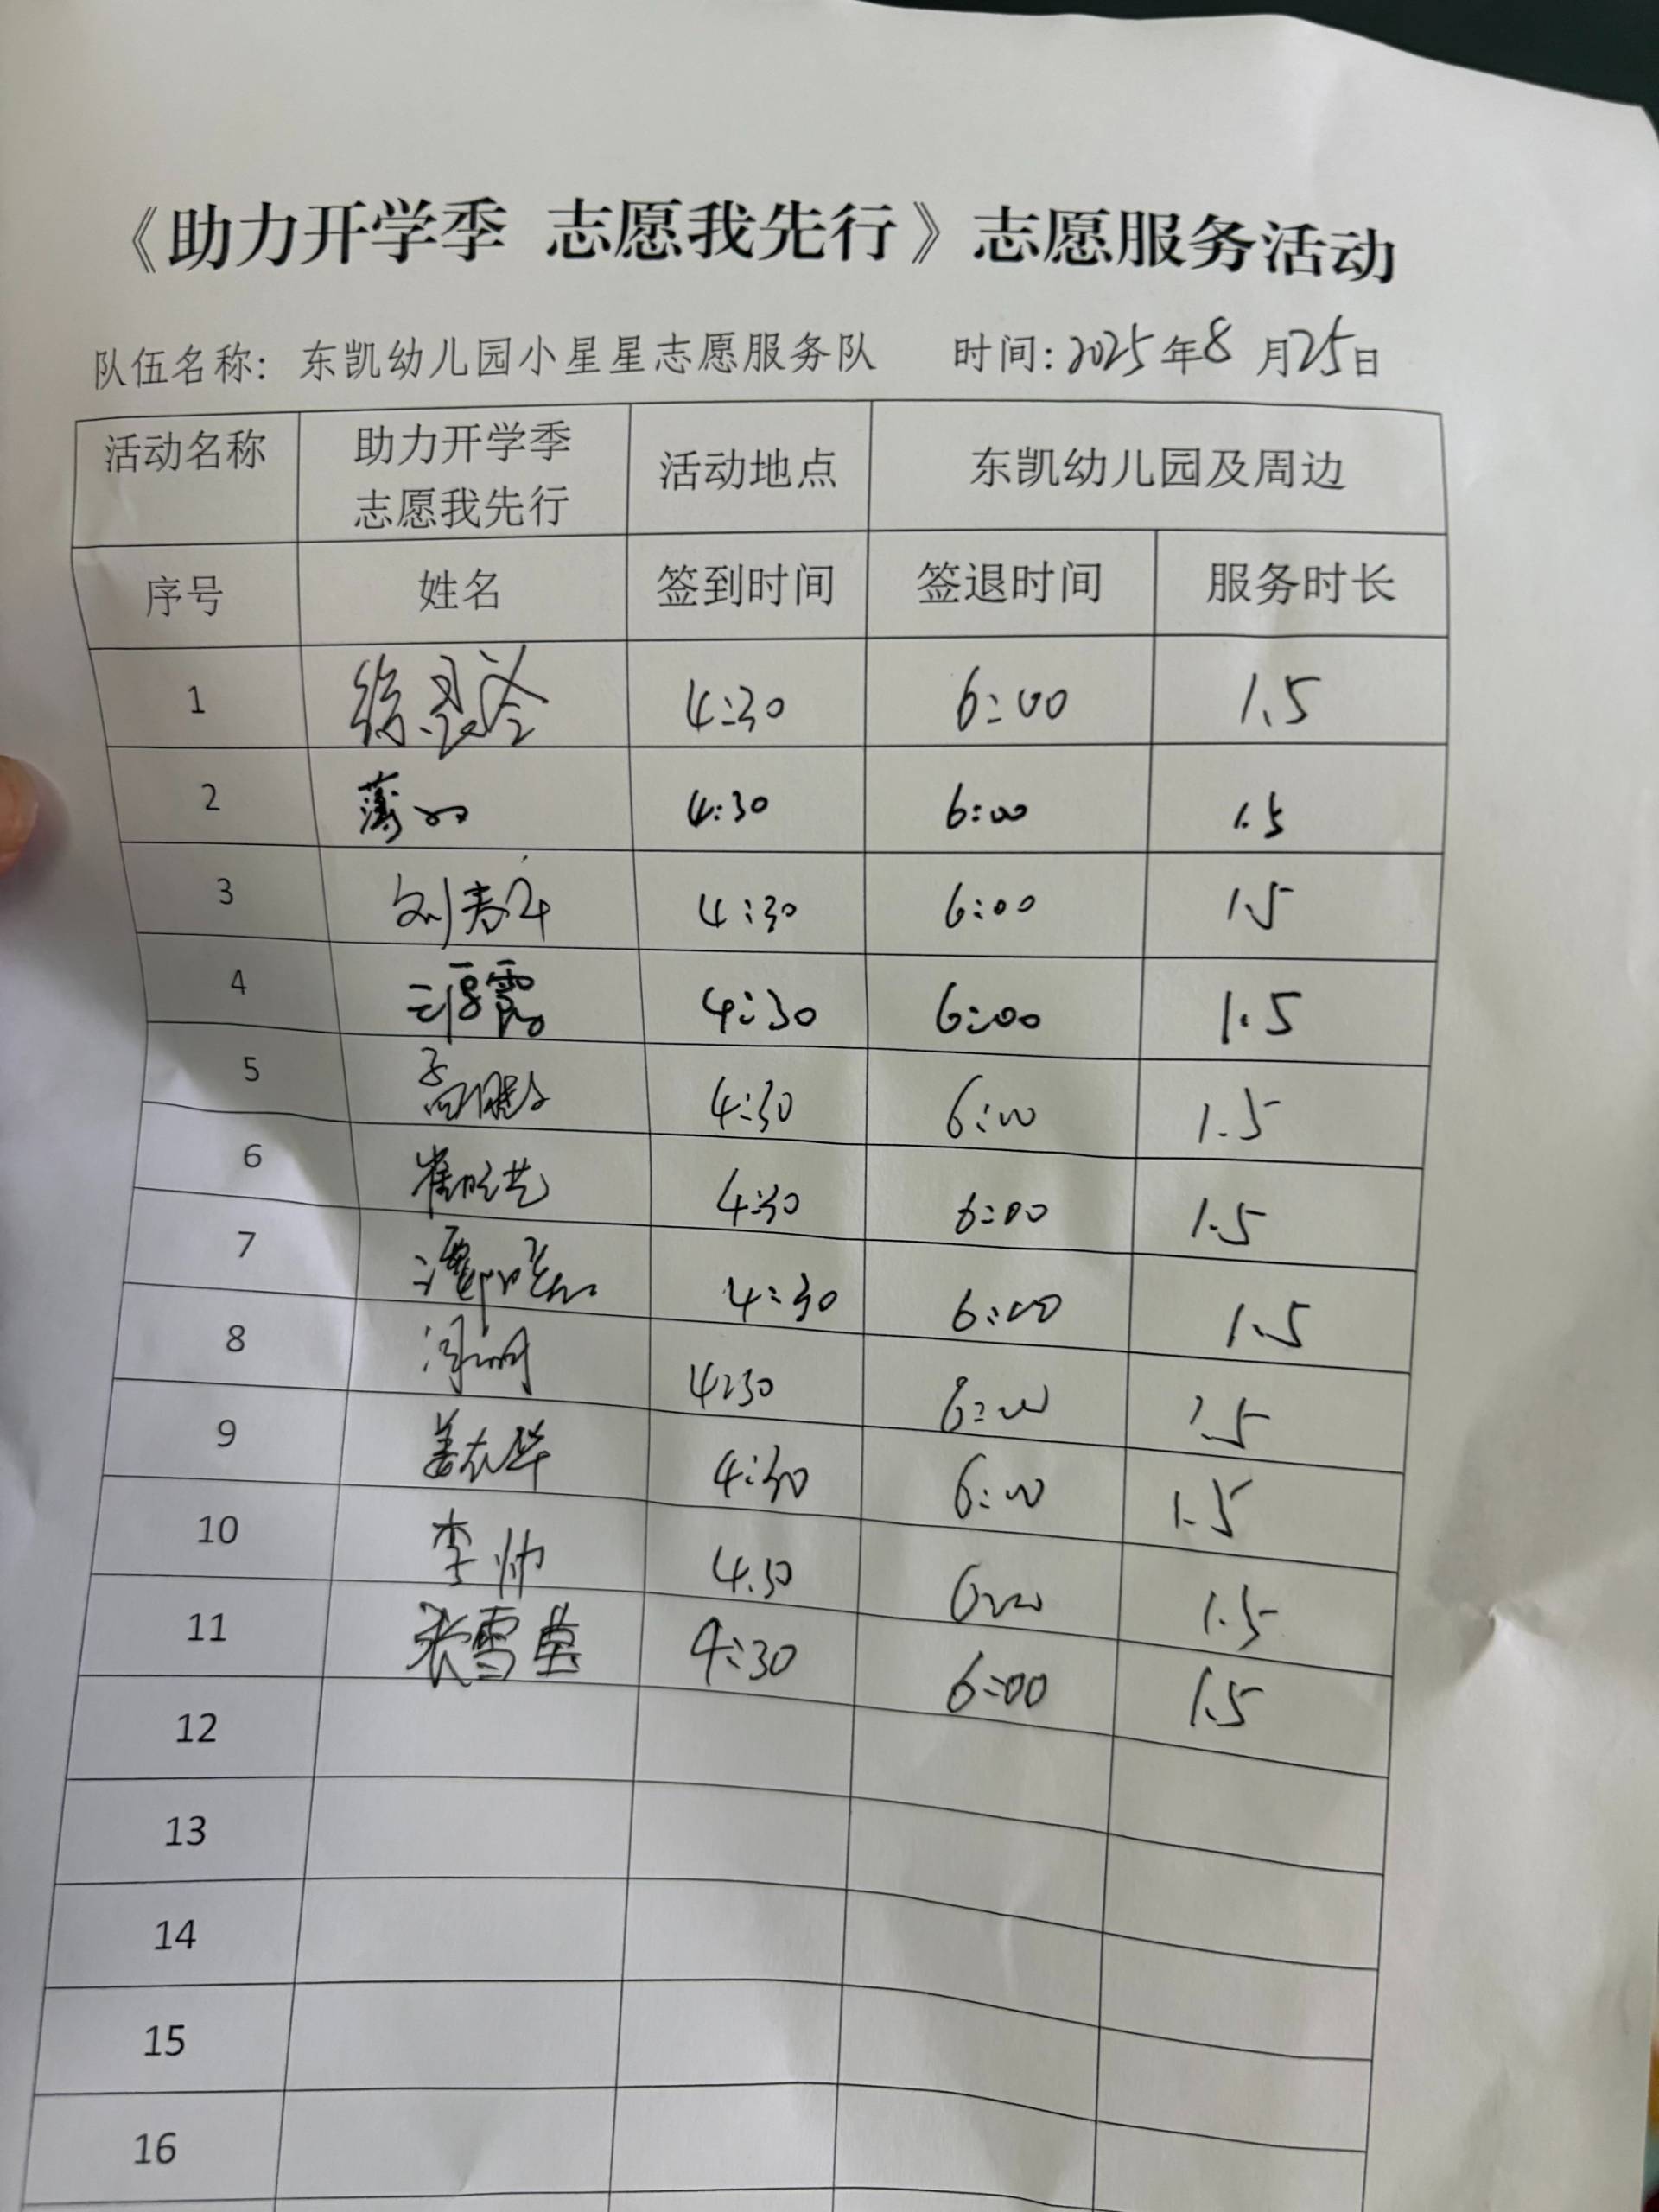 《助力开学季 志愿我先行》志愿服务活动
队伍名称：东凯幼儿园小星星志愿服务队 时间：2025年8月25日
活动名称 助力开学季 志愿我先行 活动地点 东凯幼儿园及周边
序号 姓名 签到时间 签退时间 服务时长
1 4:30 6:00 1.5
2 4:30 6:00 1.5
3 4:30 6:00 1.5
4 4:30 6:00 1.5
5 4:30 6:00 1.5
6 4:30 6:00 1.5
7 4:30 6:00 1.5
8 4:30 6:00
9 4:30 6:00 1.5
10 李帅 4.30 6:00 1.5
11 张雪莹 4:30 6:00 1.5
12
13
14
15
16